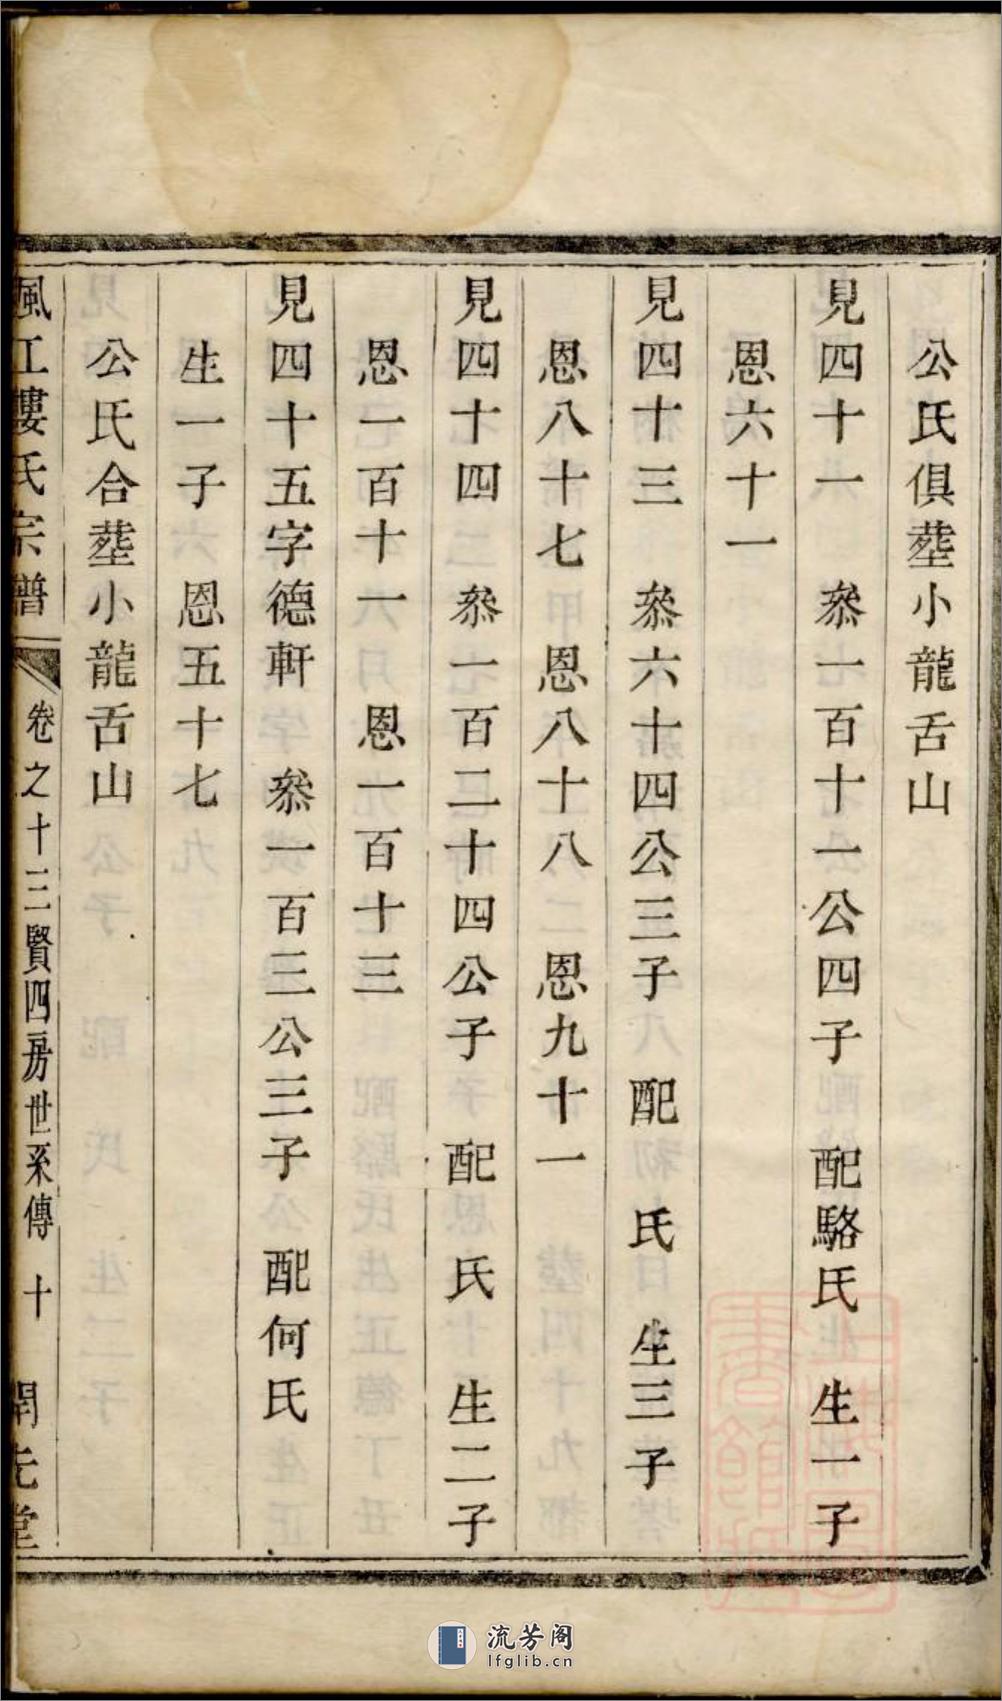 公氏俱塟小龍舌山
見四十一 叅一百十一公四子 配駱氏 生一子
恩六十一
見四十三 叅六十四公三子 配 氏 生三子
恩八十七 恩八十八 恩九十一
見四十四 叅一百二十四公子 配 氏 生二子
恩一百十一 恩一百十三
見四十五字德軒 叅一百三公三子 配何氏
生一子 恩五十七
公氏合塟小龍舌山
楓江婁氏宗譜 卷之十三賢四房世系傳 十
流芳阁
lfglib.cn